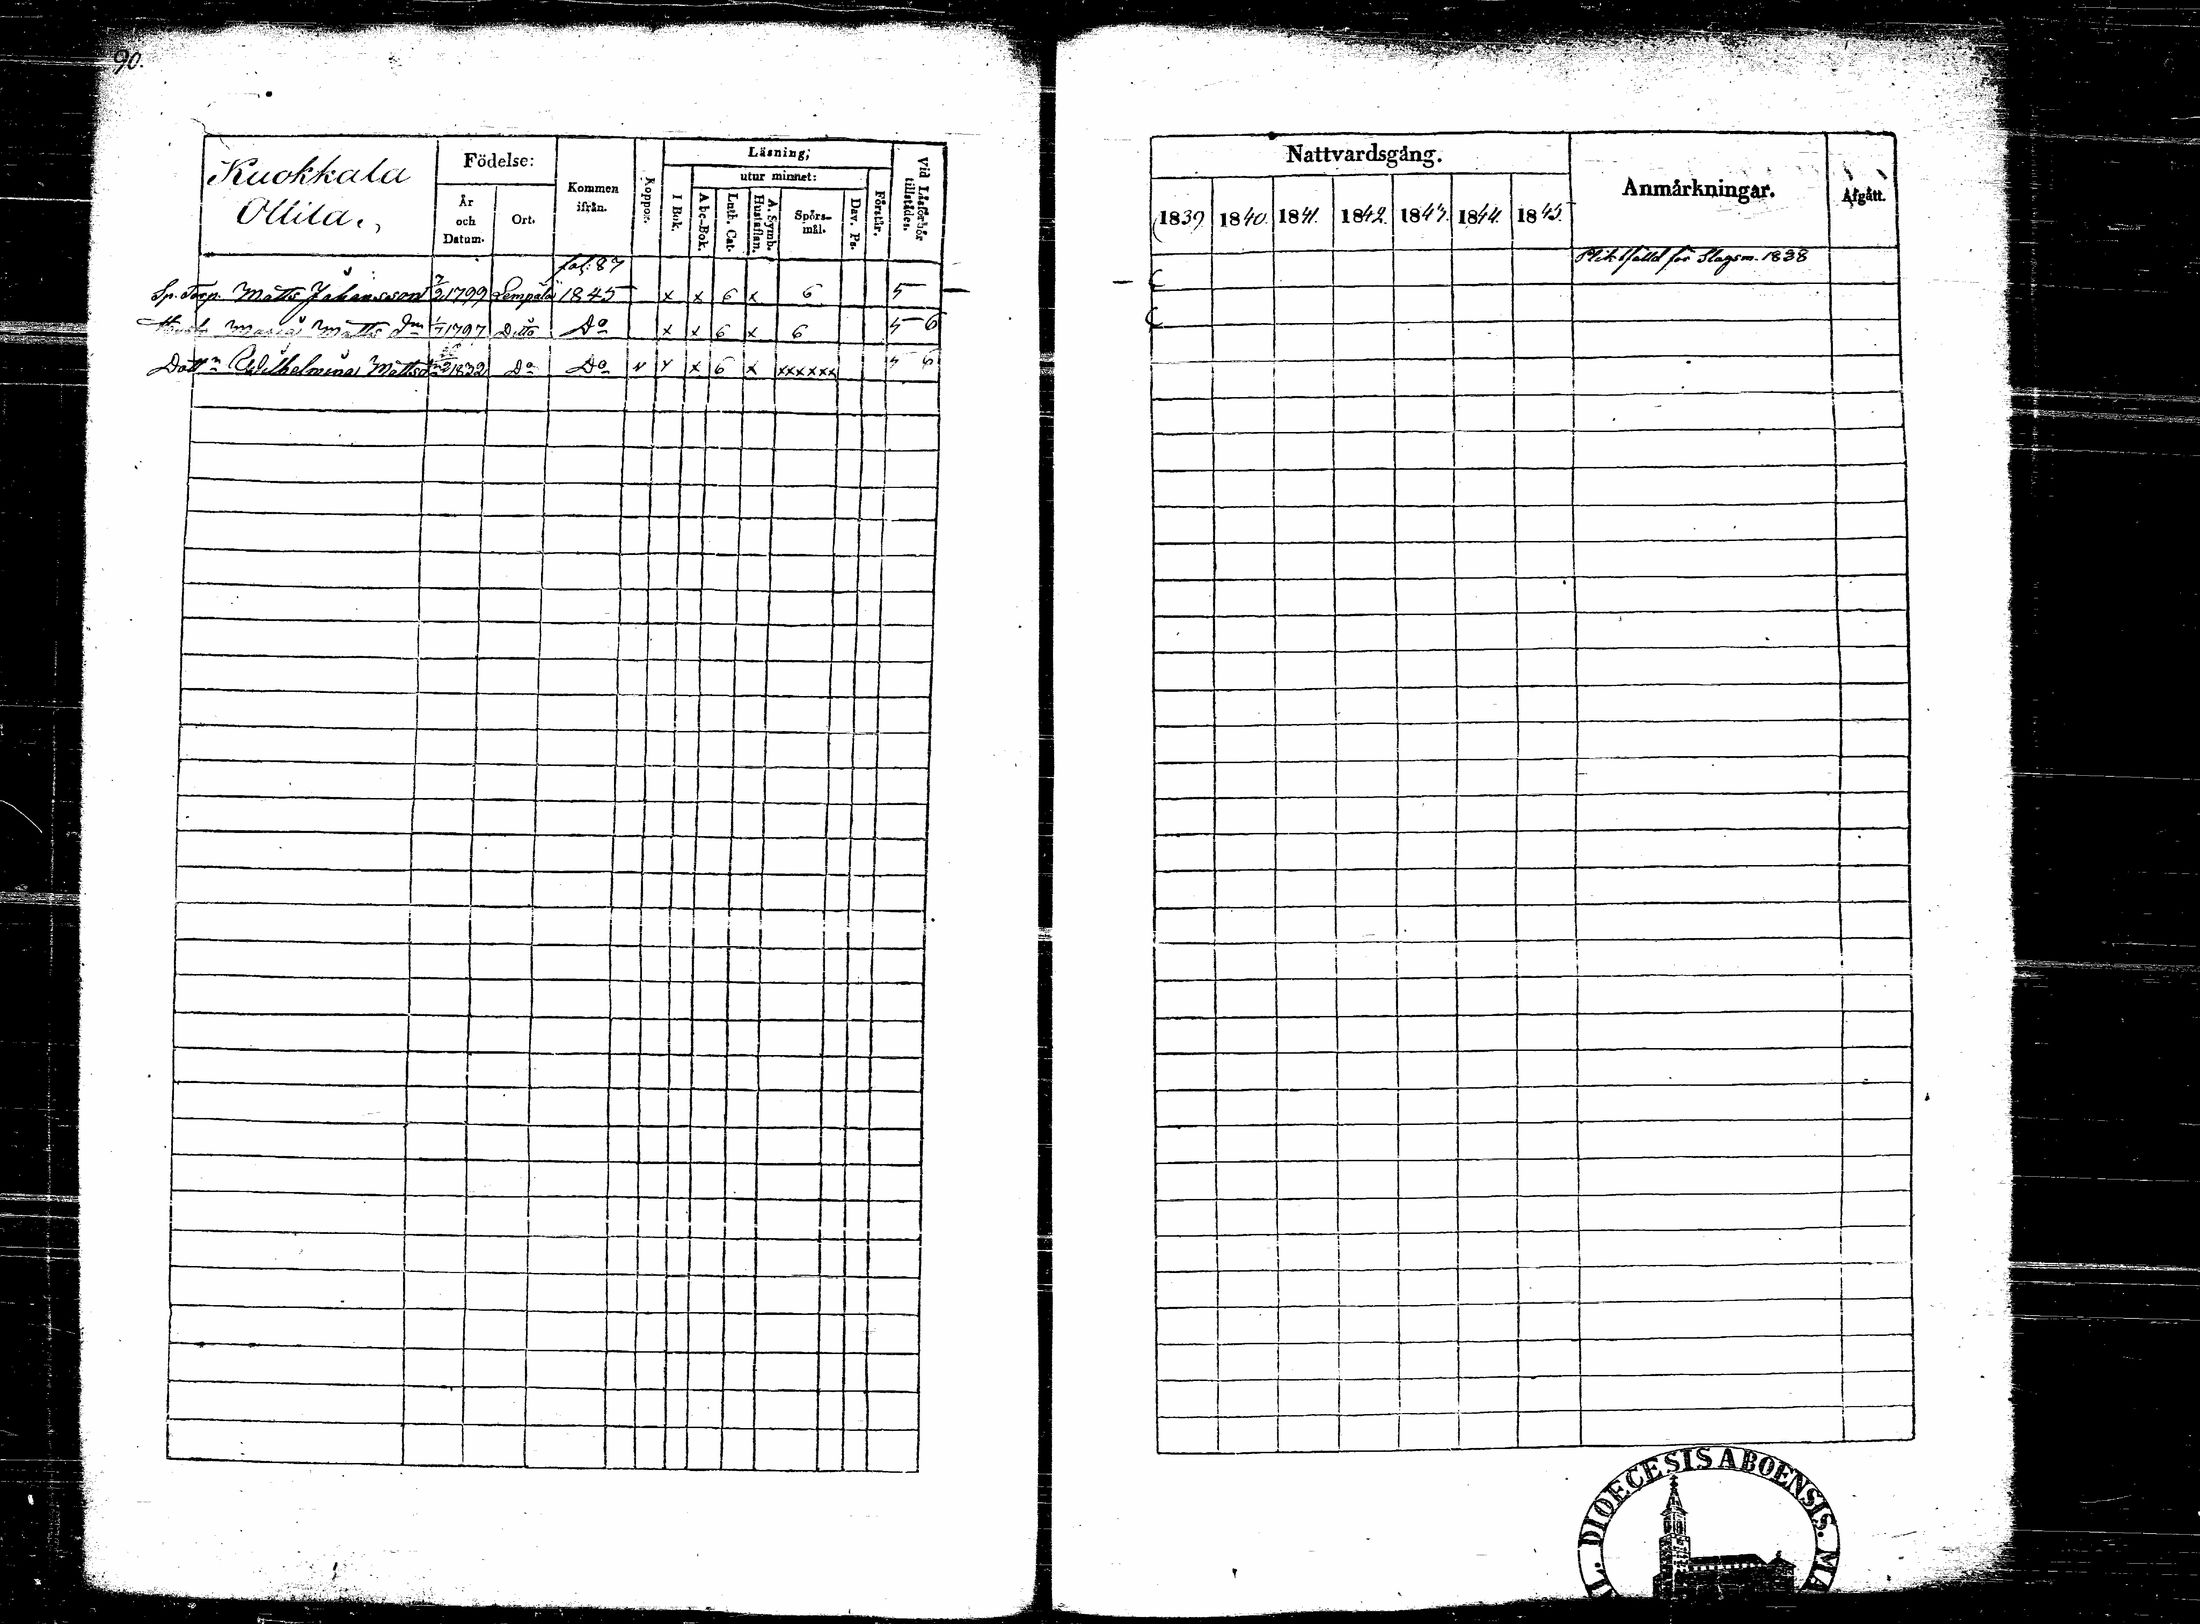 90.
Kuokkala
Ollila.
Födelse:
År
och
Datum.
Ort.
Kommen
ifrån.
Koppor.
Läsning;
utur minnet:
I Bok.
Abc-Bok.
Luth. Cat.
A. Symb.
Hustaflan.
Spörs-
mål.
Dav. Ps.
Förstår.
Vid Läsförhör
tillstädes.
fol: 87
Sp. Torp. Matts Johansson 7/2 1799 Lempälä 1845 x x 6 x 6 5
Maria Matts Dr 1/7 1797 Ditto Do x x 6 x 6 5 6
Dottr Wilhelmina Mattsd 1832 Do Do x 6 x xxxxxx 5 6
Nattvardsgång.
1839 1840. 1841. 1842. 1843. 1844. 1845.
Anmärkningar.
Afgått.
Pliktfälld för Slagsm. 1838
L. DIOECESIS ABOENSIS. MA